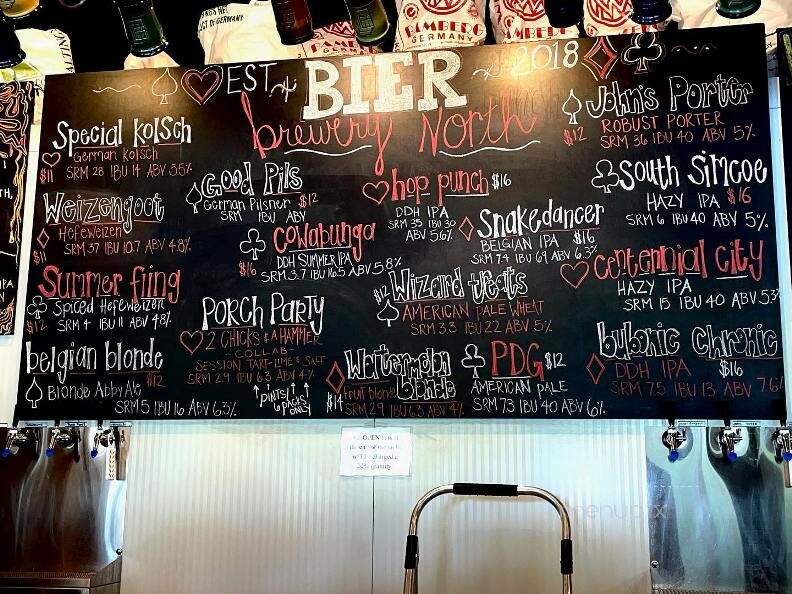 BAMBERG
GERMANY
EST.
BIER
2018
brewery North
Special Kolsch
German Kolsch
$11
SRM 28 IBU 14 ABV 5.5%
Weizengoot
Hefeweizen
$11
SRM 3.7 IBU 10.7 ABV 4.8%
Summer fling
Spiced Hefeweizen
$12
SRM 4 IBU 11 ABV 4.8%
belgian blonde
Blonde Abby Ale $12
SRM 5 IBU 16 ABV 6.3%
Good Pils
German Pilsner $12
SRM IBU ABV
Cowabunga
DDH SUMMER IPA
$16
SRM 3.7 IBU 16.5 ABV 5.8%
PORCH PARTY
2 CHICKS & A HAMMER
- COLLAB -
SESSION TART-LIME & SALT
SRM 2.9 IBU 6.3 ABV 4%
PINTS/
6 PACKS
ONLY
hop punch $16
DDH IPA
SRM 3.5 IBU 30
ABV 5.6%
Snakedancer
BELGIAN IPA $16
SRM 7.4 IBU 69 ABV 6.3%
Wizard treats
$12
AMERICAN PALE WHEAT
SRM 3.3 IBU 22 ABV 5%
Watermelon
blonde
fruit blonde
$14
SRM 2.9 IBU 6.3 ABV 4%
PDG $12
AMERICAN PALE
SRM 7.3 IBU 40 ABV 6%
John's Porter
$12
ROBUST PORTER
SRM 36 IBU 40 ABV 5%
South Simcoe
HAZY IPA $16
SRM 6 IBU 40 ABV 5%
Centennial City
HAZY IPA
SRM 15 IBU 40 ABV 5.3%
bubonic chronic
DDH IPA $16
SRM 7.5 IBU 13 ABV 7.6%